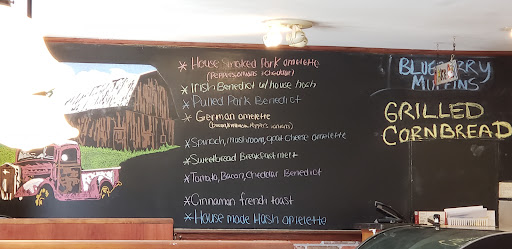 * House Smoked Pork omelette
(Peppers, onions & cheddar)
* Irish Benedict w/ house hash
* Pulled Pork Benedict
* German omelette
* Spinach, mushroom, goat cheese omelette
* Sweetbread Breakfast melt
* Tomato, Bacon, Cheddar Benedict
* Cinnamon french toast
* House made Hash omelette
BLUEBERRY
MUFFINS
GRILLED
CORNBREAD